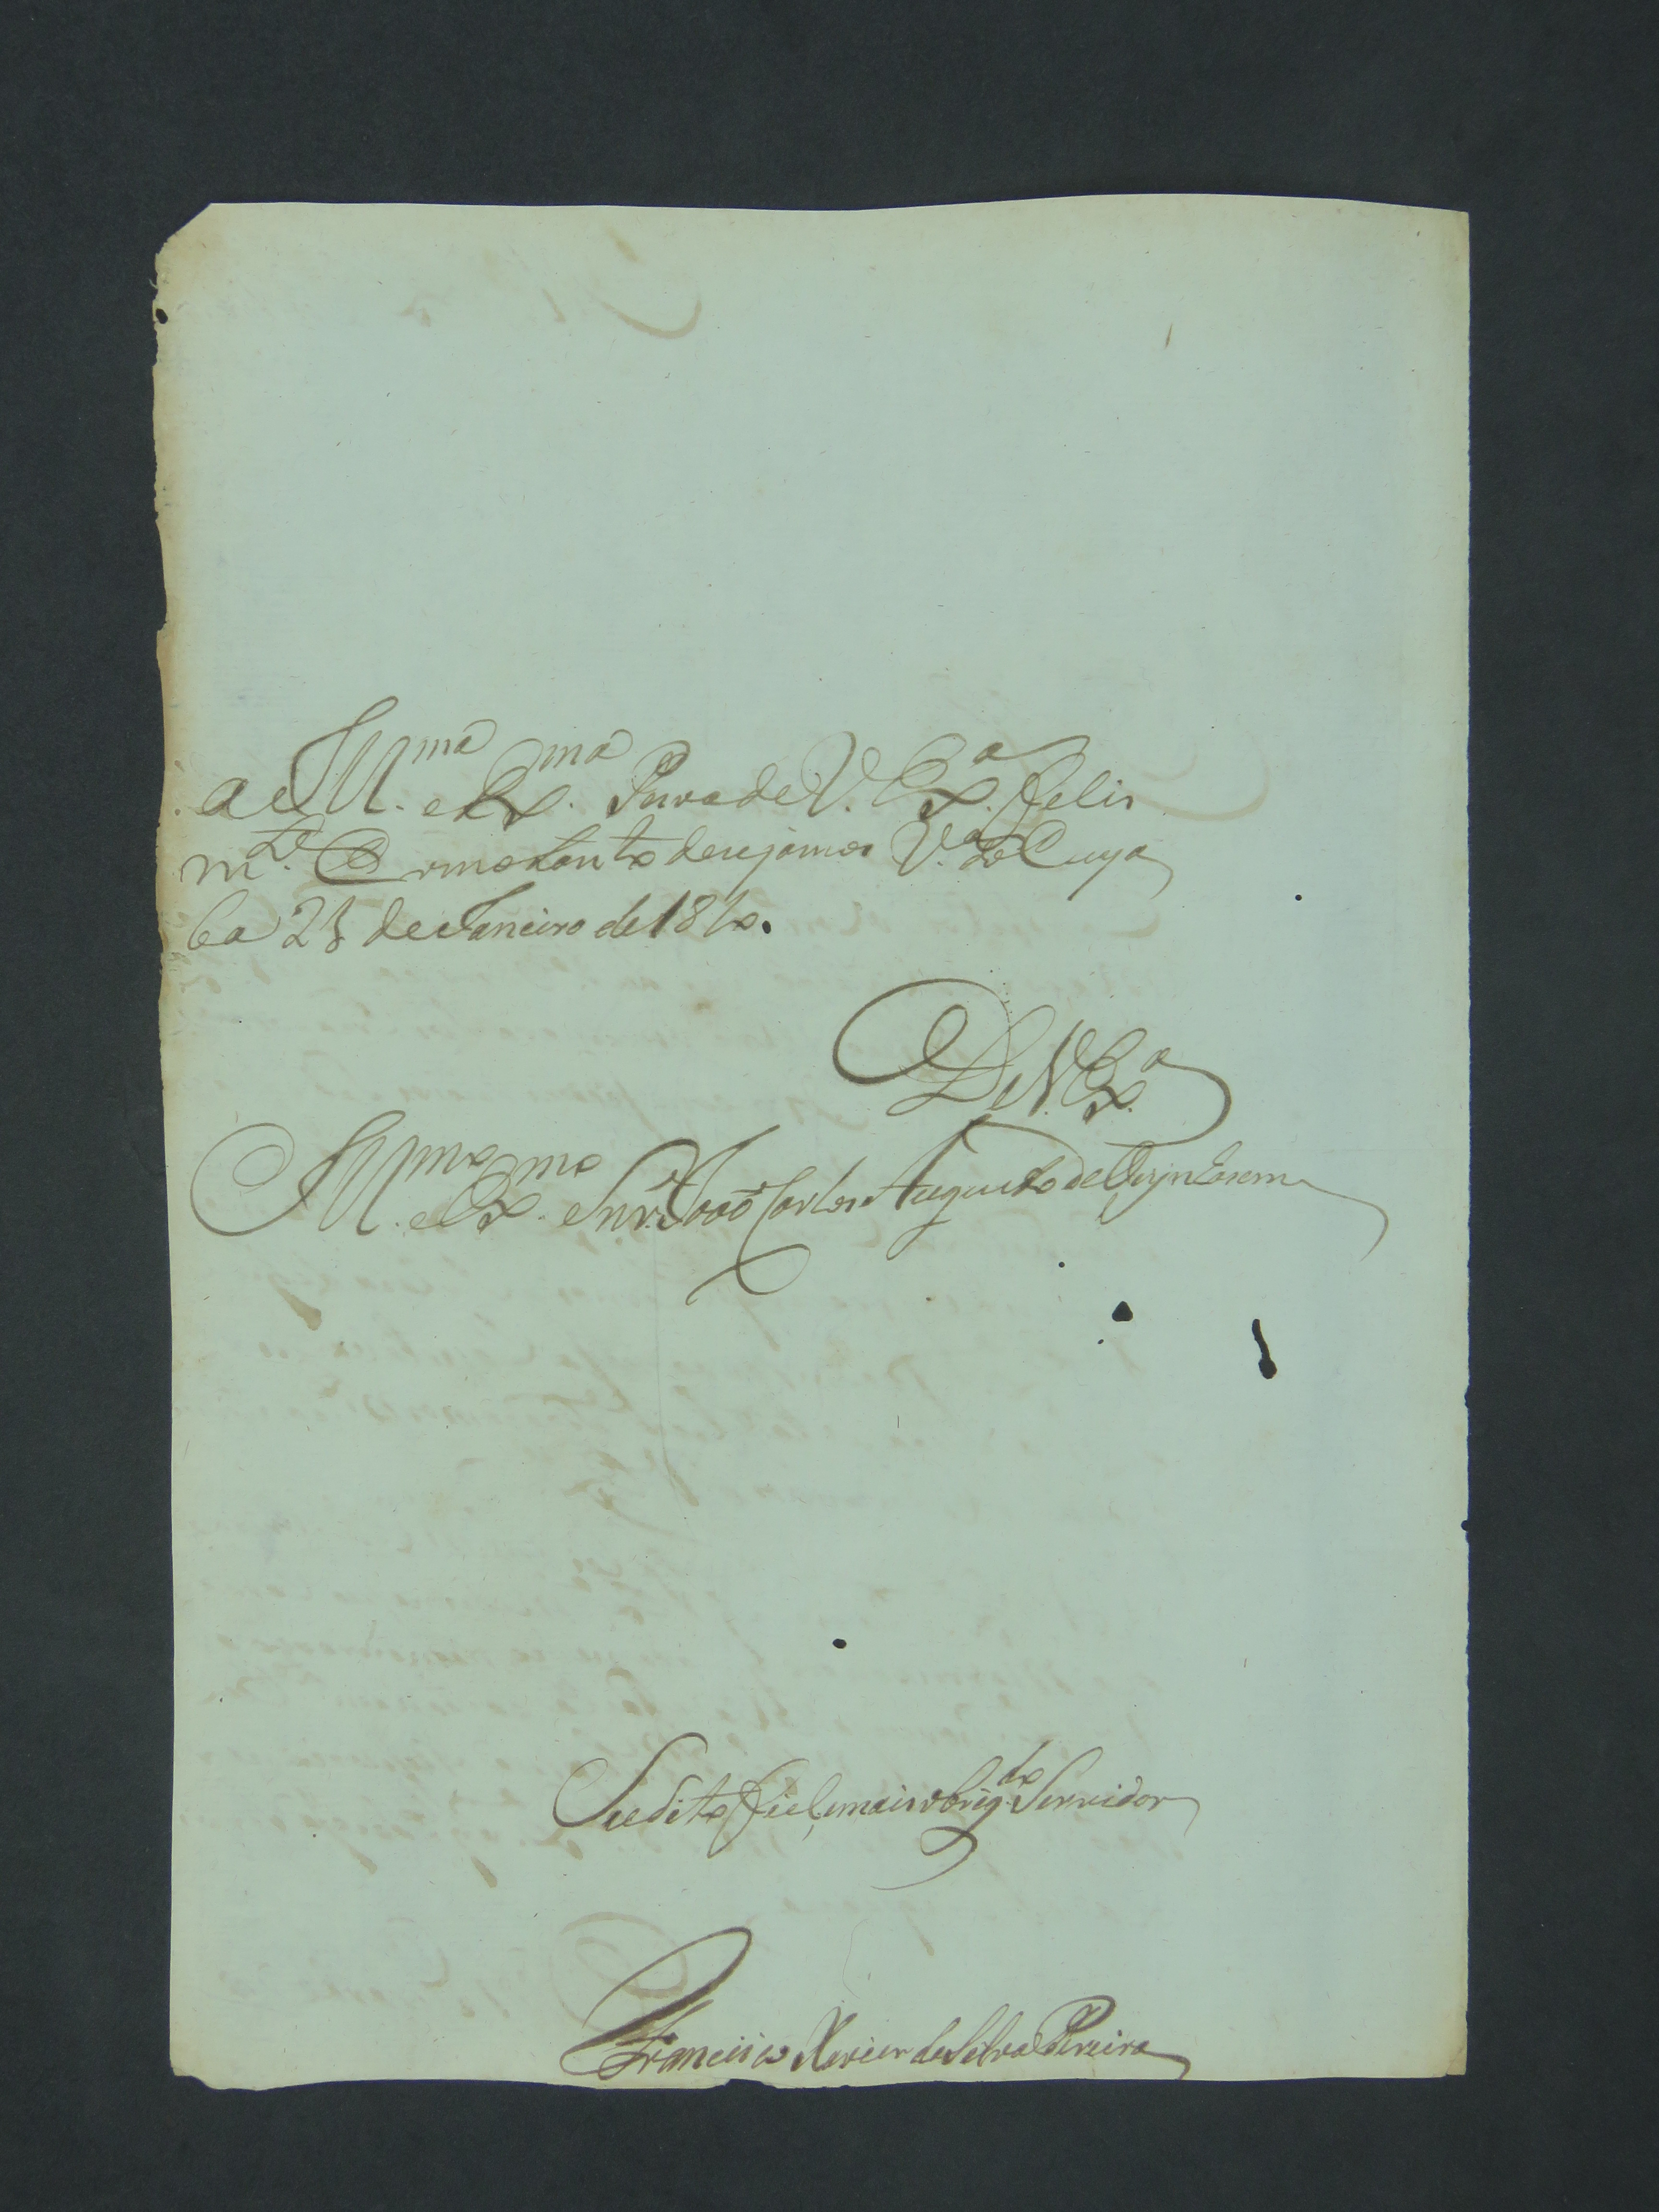 a Ill.ma e Ex.ma Pessoa de V. Ex.a felis
m.te Como tanto desejamos V.a do Cuya
ba 28 de Janeiro de 181
De V. Ex.a
Ill.mo e Ex.mo Snr. João Carlos Augusto de Oeynhausem
Sudito fiel, e mais obrig.do Servidor
Francisco Xavier da Silva Pereira